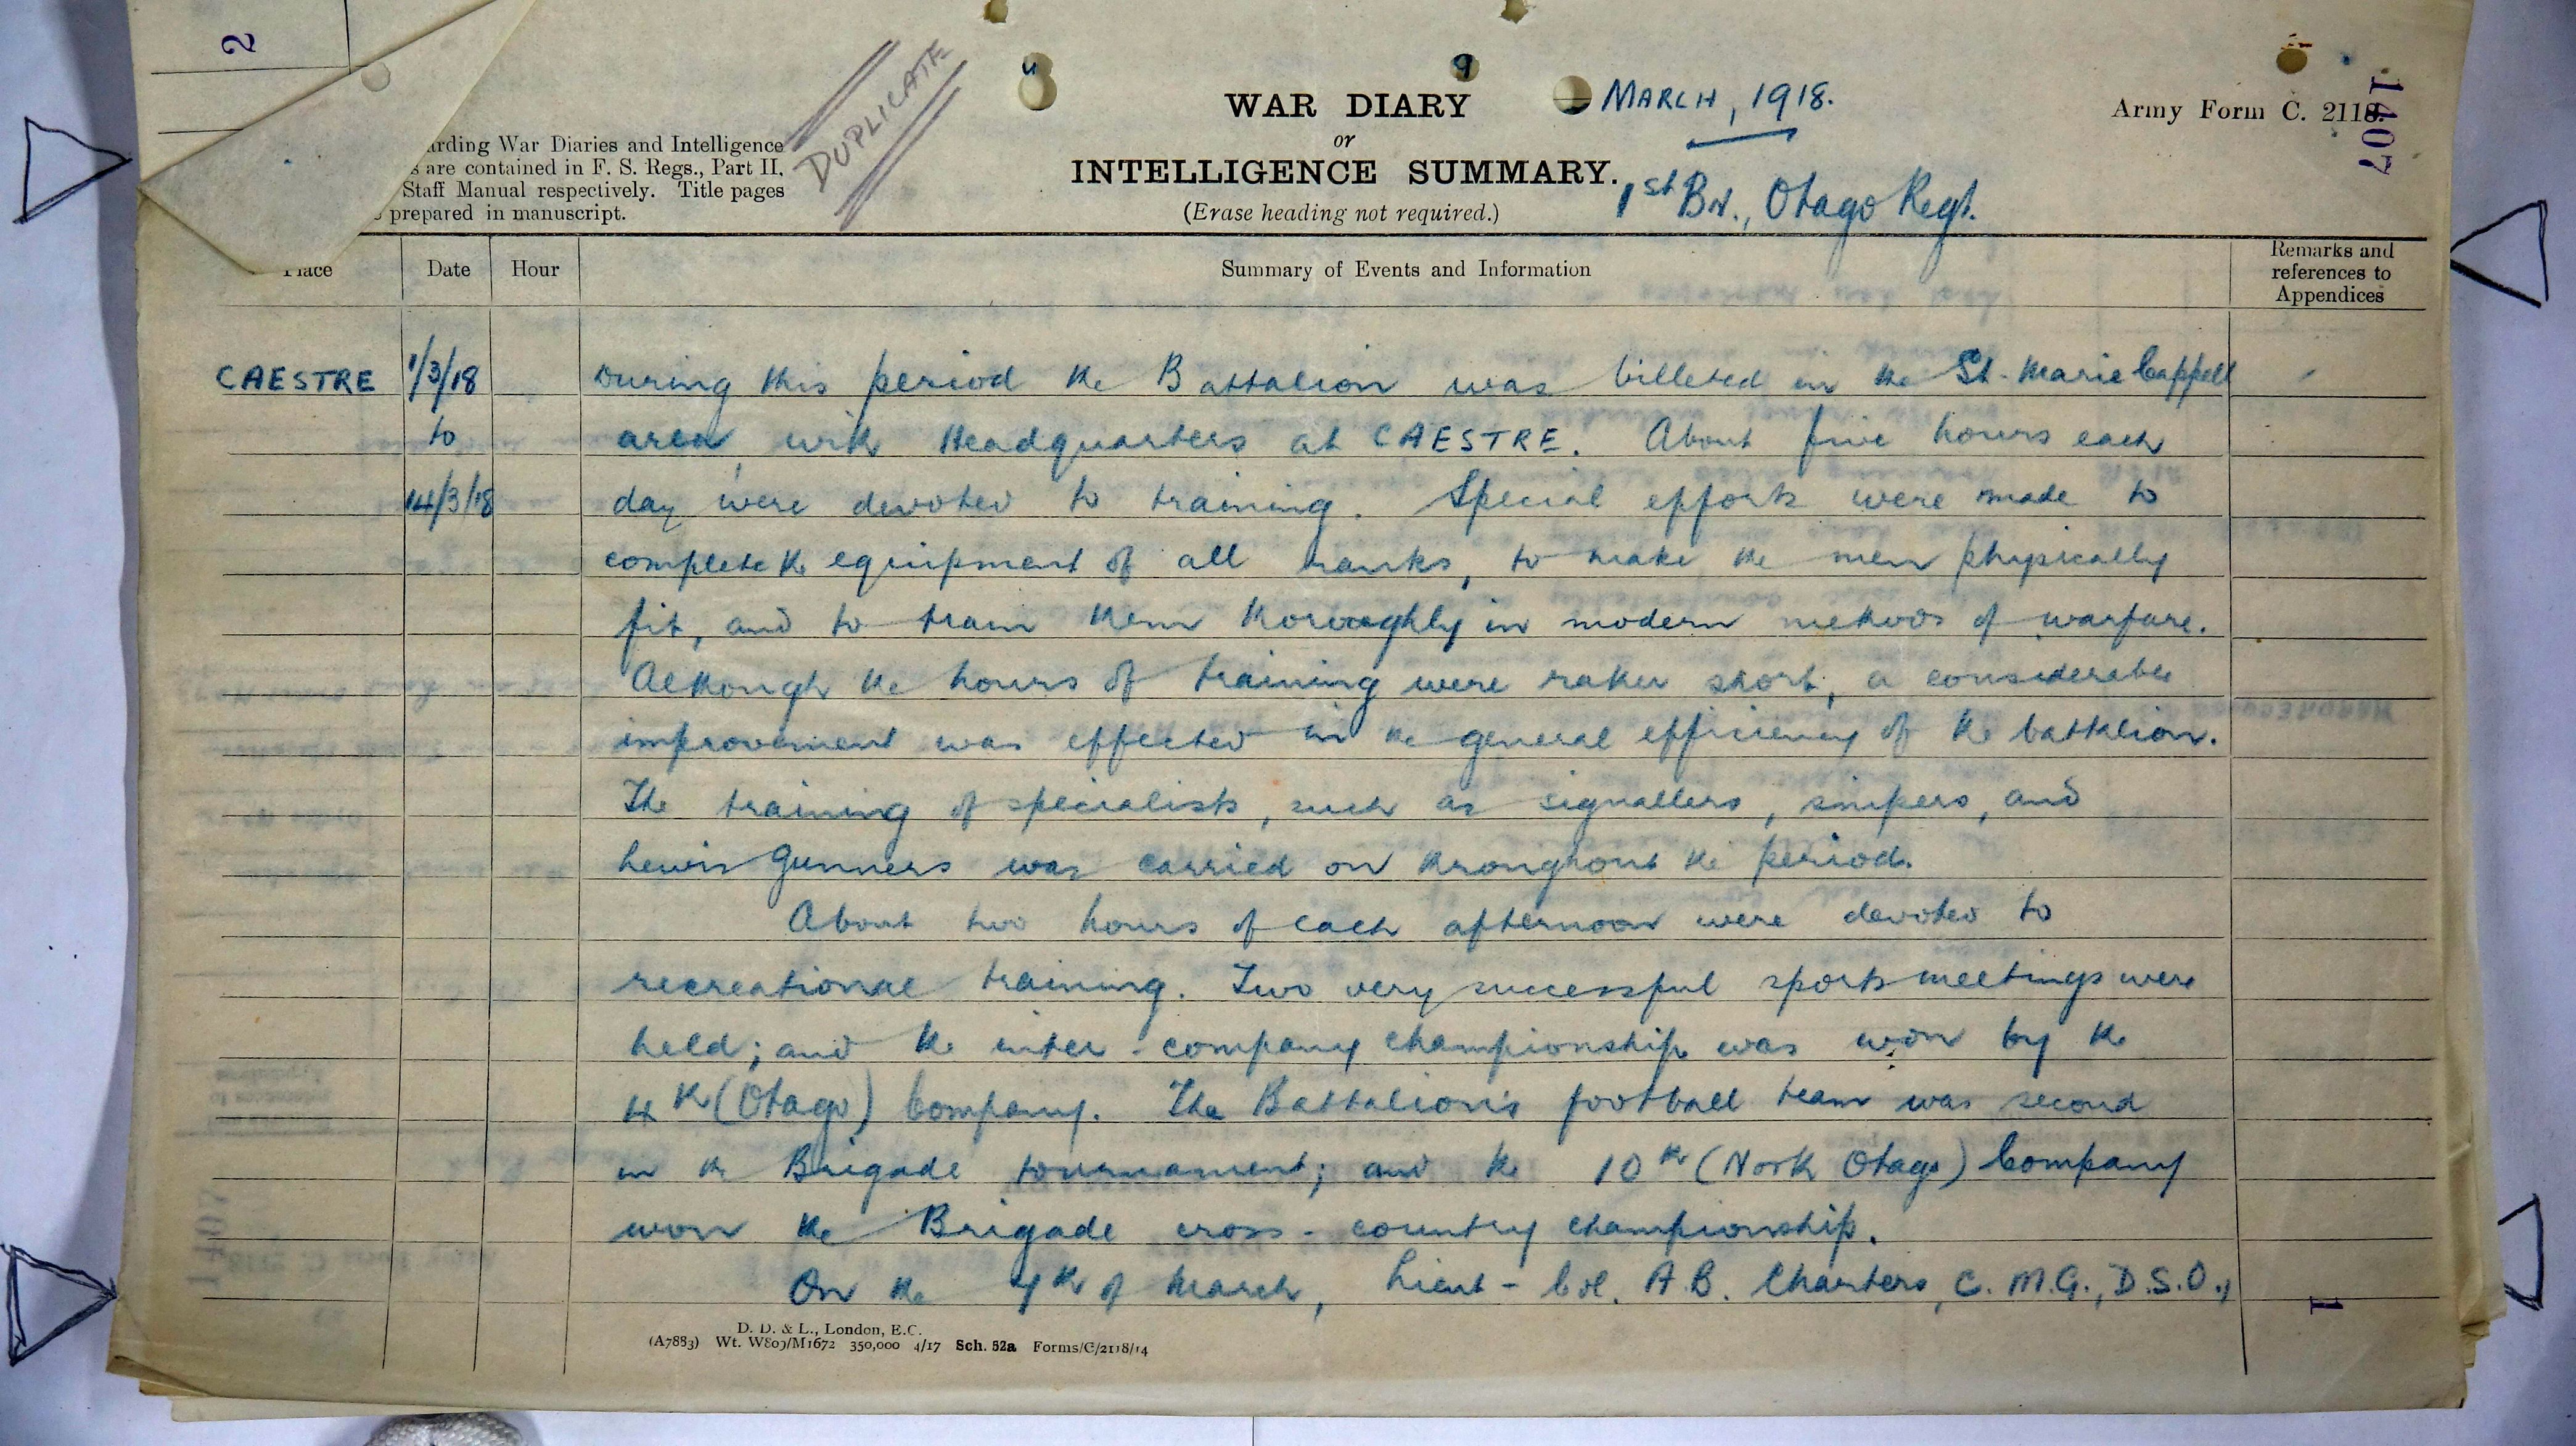 2
DUPLICATE
WAR DIARY
or
INTELLIGENCE SUMMARY.
(Erase heading not required.)
MARCH, 1918.
1st BN., Otago Regt.
Army Form C. 2118.
1407
rding War Diaries and Intelligence
s are contained in F. S. Regs., Part II,
Staff Manual respectively. Title pages
prepared in manuscript.
Place Date Hour Summary of Events and Information Remarks and references to Appendices
CAESTRE 1/3/18 During this period the Battalion was billeted in the St. Marie Cappell
to area, with Headquarters at CAESTRE. About five hours each
14/3/18 day were devoted to training. Special efforts were made to
complete the equipment of all ranks, to make the men physically
fit, and to train them thoroughly in modern methods of warfare.
Although the hours of training were rather short, a considerable
improvement was effected in the general efficiency of the battalion.
The training of specialists, such as signallers, snipers, and
Lewis Gunners was carried on throughout the period.
About two hours of each afternoon were devoted to
recreational training. Two very successful sports meetings were
held; and the inter-company championship was won by the
4th (Otago) Company. The Battalion's football team was second
in the Brigade tournament; and the 10th (North Otago) Company
won the Brigade cross-country championship.
On the of March, Lieut-Col. A.B. Charters, C.M.G., D.S.O.,
1
D. D. & L., London, E.C.
(A7883) Wt. W809/M1672 350,000 4/17 Sch. 52a Forms/C/2118/14